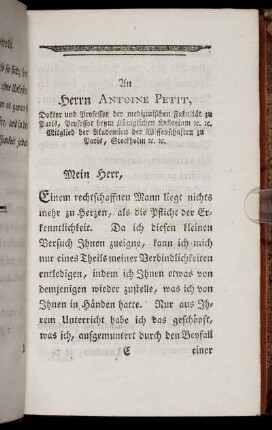 An
Herrn ANTOINE PETIT,
Doktor und Professor der medizinischen Fakultät zu
Paris, Professor beym Königlichen Kollegium ꝛc. ꝛc.
Mitglied der Akademien der Wissenschaften zu
Paris, Stockholm ꝛc. ꝛc.
Mein Herr,
Einem rechtschaffnen Mann liegt nichts
mehr zu Herzen, als die Pflicht der Er-
kenntlichkeit. Da ich diesen kleinen
Versuch Ihnen zueigne, kann ich mich
nur eines Theils meiner Verbindlichkeiten
entledigen, indem ich Ihnen etwas von
demjenigen wieder zustelle, was ich von
Ihnen in Händen hatte. Nur aus Ih-
rem Unterricht habe ich das geschöpft,
was ich, aufgemuntert durch den Beyfall
E einer